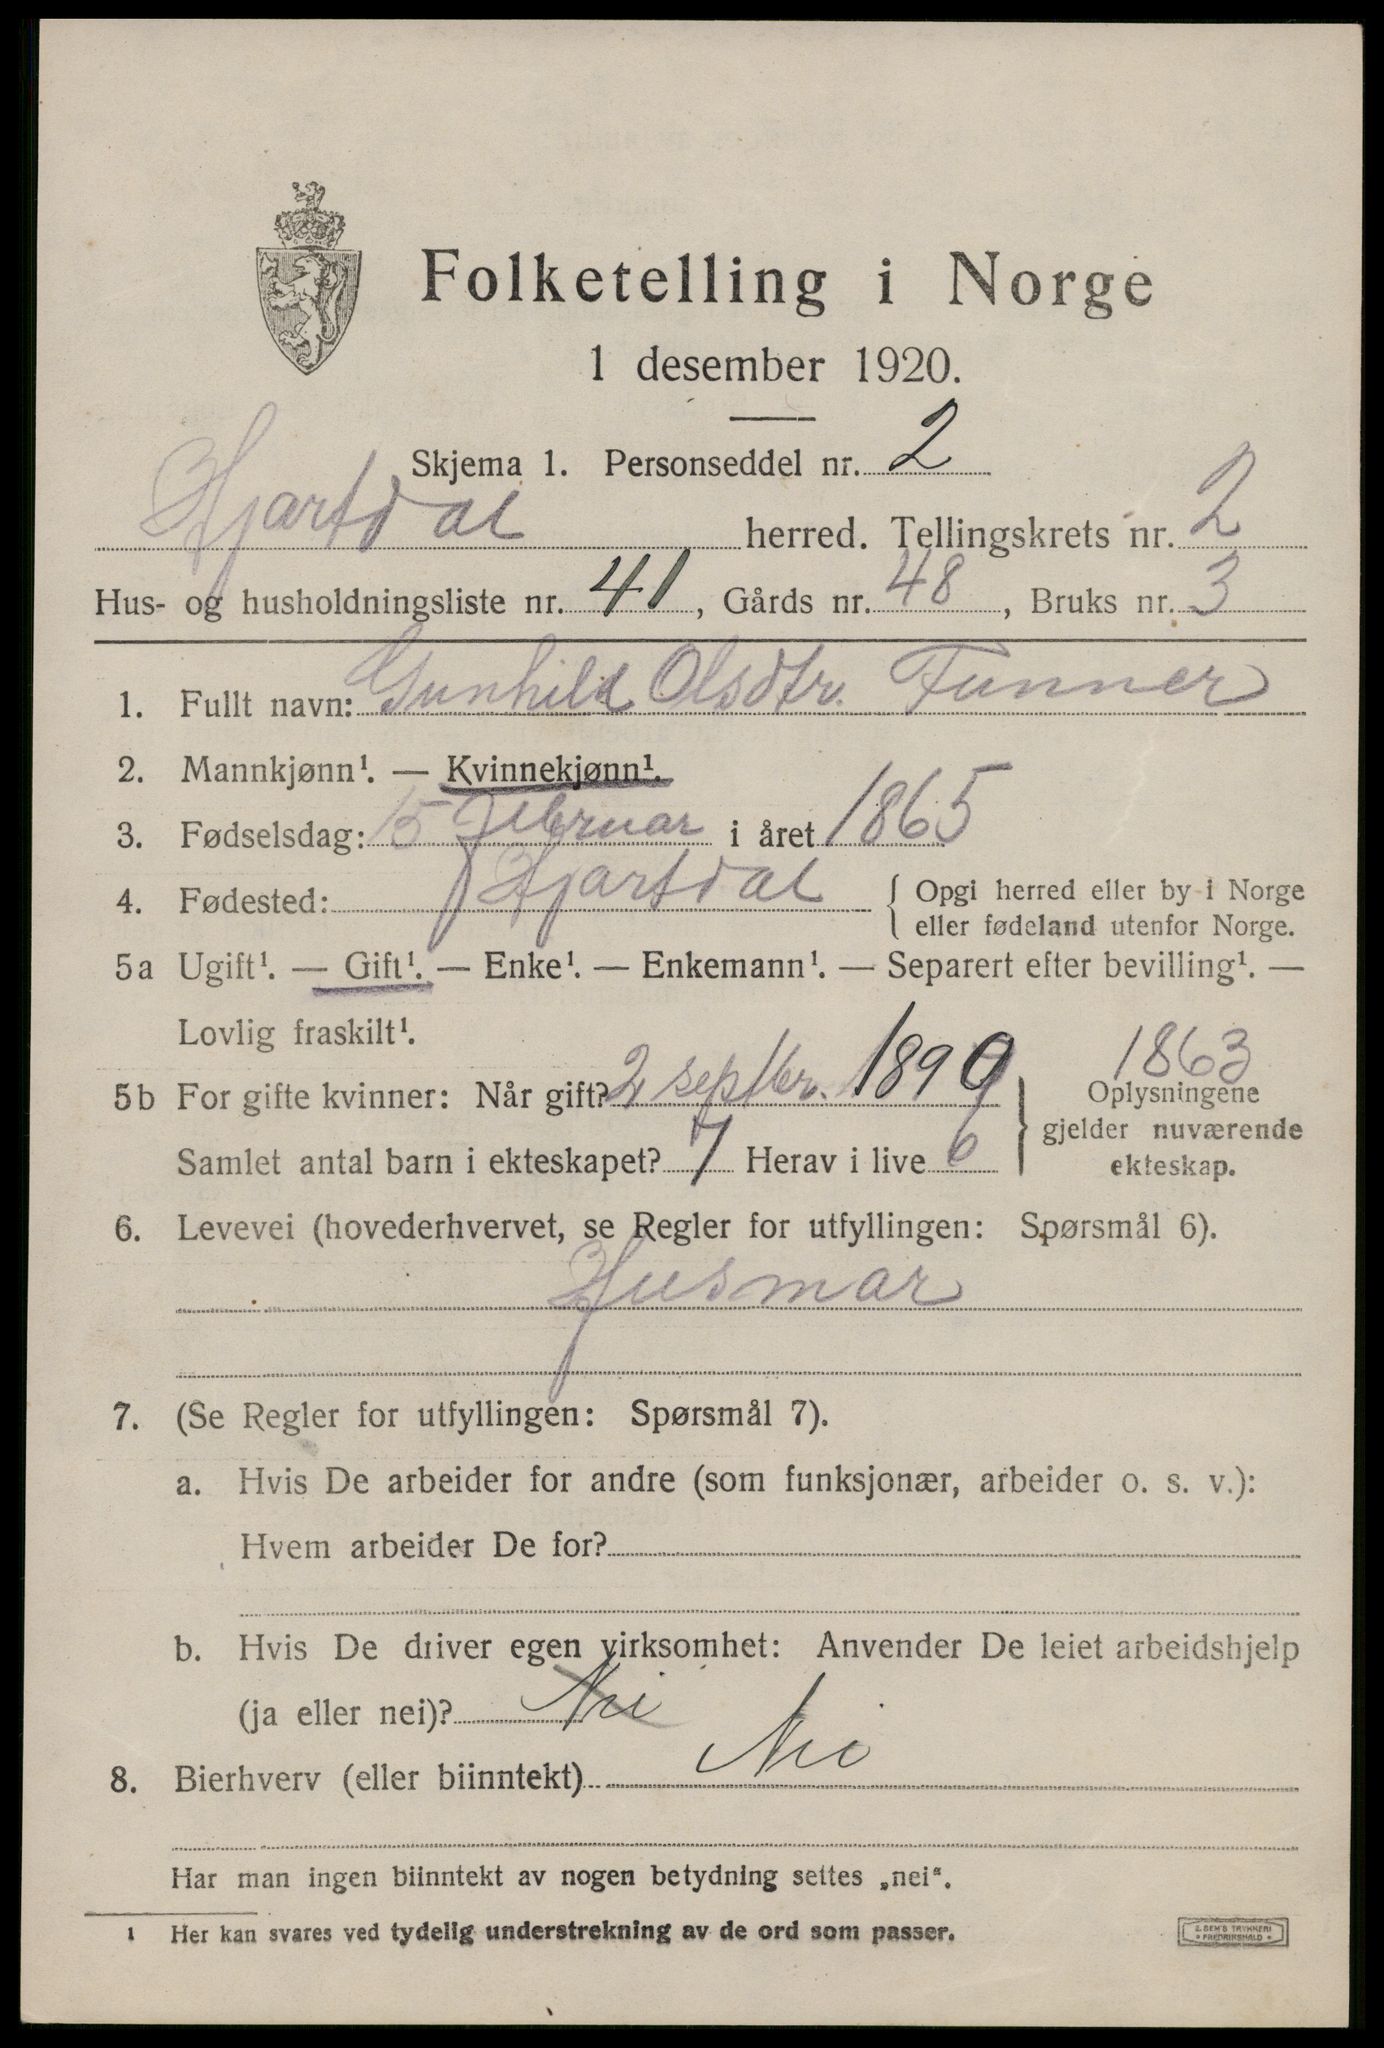 Folketelling i Norge
1 desember 1920.
Skjema 1. Personseddel nr. 2
Hjartdal herred. Tellingskrets nr. 2
Hus- og husholdningsliste nr. 41, Gårds nr. 48, Bruks nr. 3
1. Fullt navn: Gunhild Olsdtr. Funner
2. Mannkjønn¹. — Kvinnekjønn¹.
3. Fødselsdag: 15 Februar i året 1865
4. Fødested: Hjartdal { Opgi herred eller by i Norge
eller fødeland utenfor Norge.
5a Ugift¹. — Gift¹. — Enke¹. — Enkemann¹. — Separert efter bevilling¹. —
Lovlig fraskilt¹.
1863
5b For gifte kvinner: Når gift? 2 septbr. 1890
Samlet antal barn i ekteskapet? 7 Herav i live 6
Oplysningene
gjelder nuværende
ekteskap.
6. Levevei (hovederhvervet, se Regler for utfyllingen: Spørsmål 6).
Husmor
7. (Se Regler for utfyllingen: Spørsmål 7).
a. Hvis De arbeider for andre (som funksjonær, arbeider o. s. v.):
Hvem arbeider De for?
b. Hvis De driver egen virksomhet: Anvender De leiet arbeidshjelp
(ja eller nei)? Nei
8. Bierhverv (eller biinntekt) Nei
Har man ingen biinntekt av nogen betydning settes „nei“.
¹ Her kan svares ved tydelig understrekning av de ord som passer.
E. SEM'S TRYKKERI
• FREDRIKSHALD •